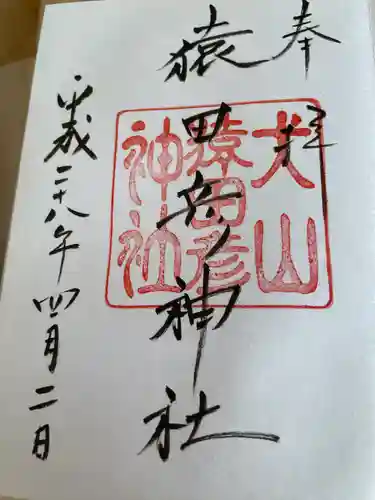 奉拝
猿田彦神社
平成二十八年四月二日
犬山
猿田彦
神社